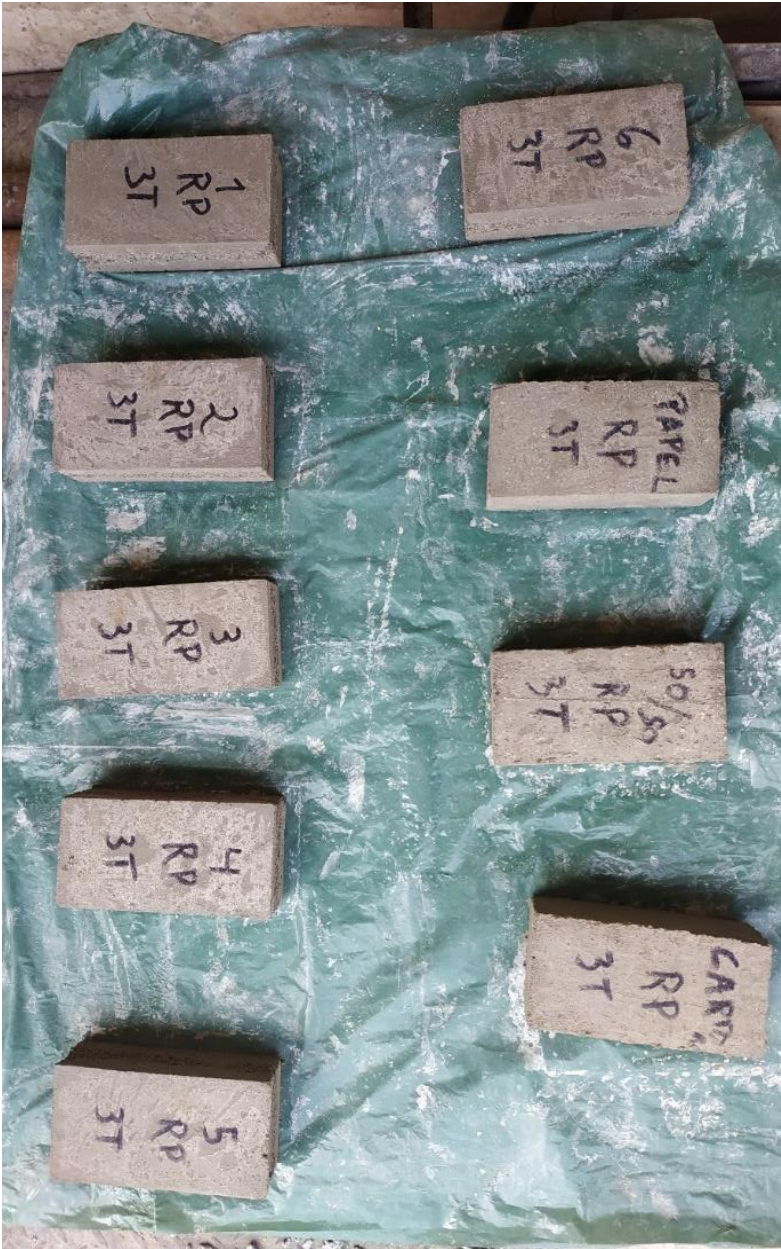 1
RP
3T
2
RP
3T
3
RP
3T
4
RP
3T
5
RP
3T
6
RP
3T
PAPEL
RP
3T
50/50
RP
3T
RP
3T